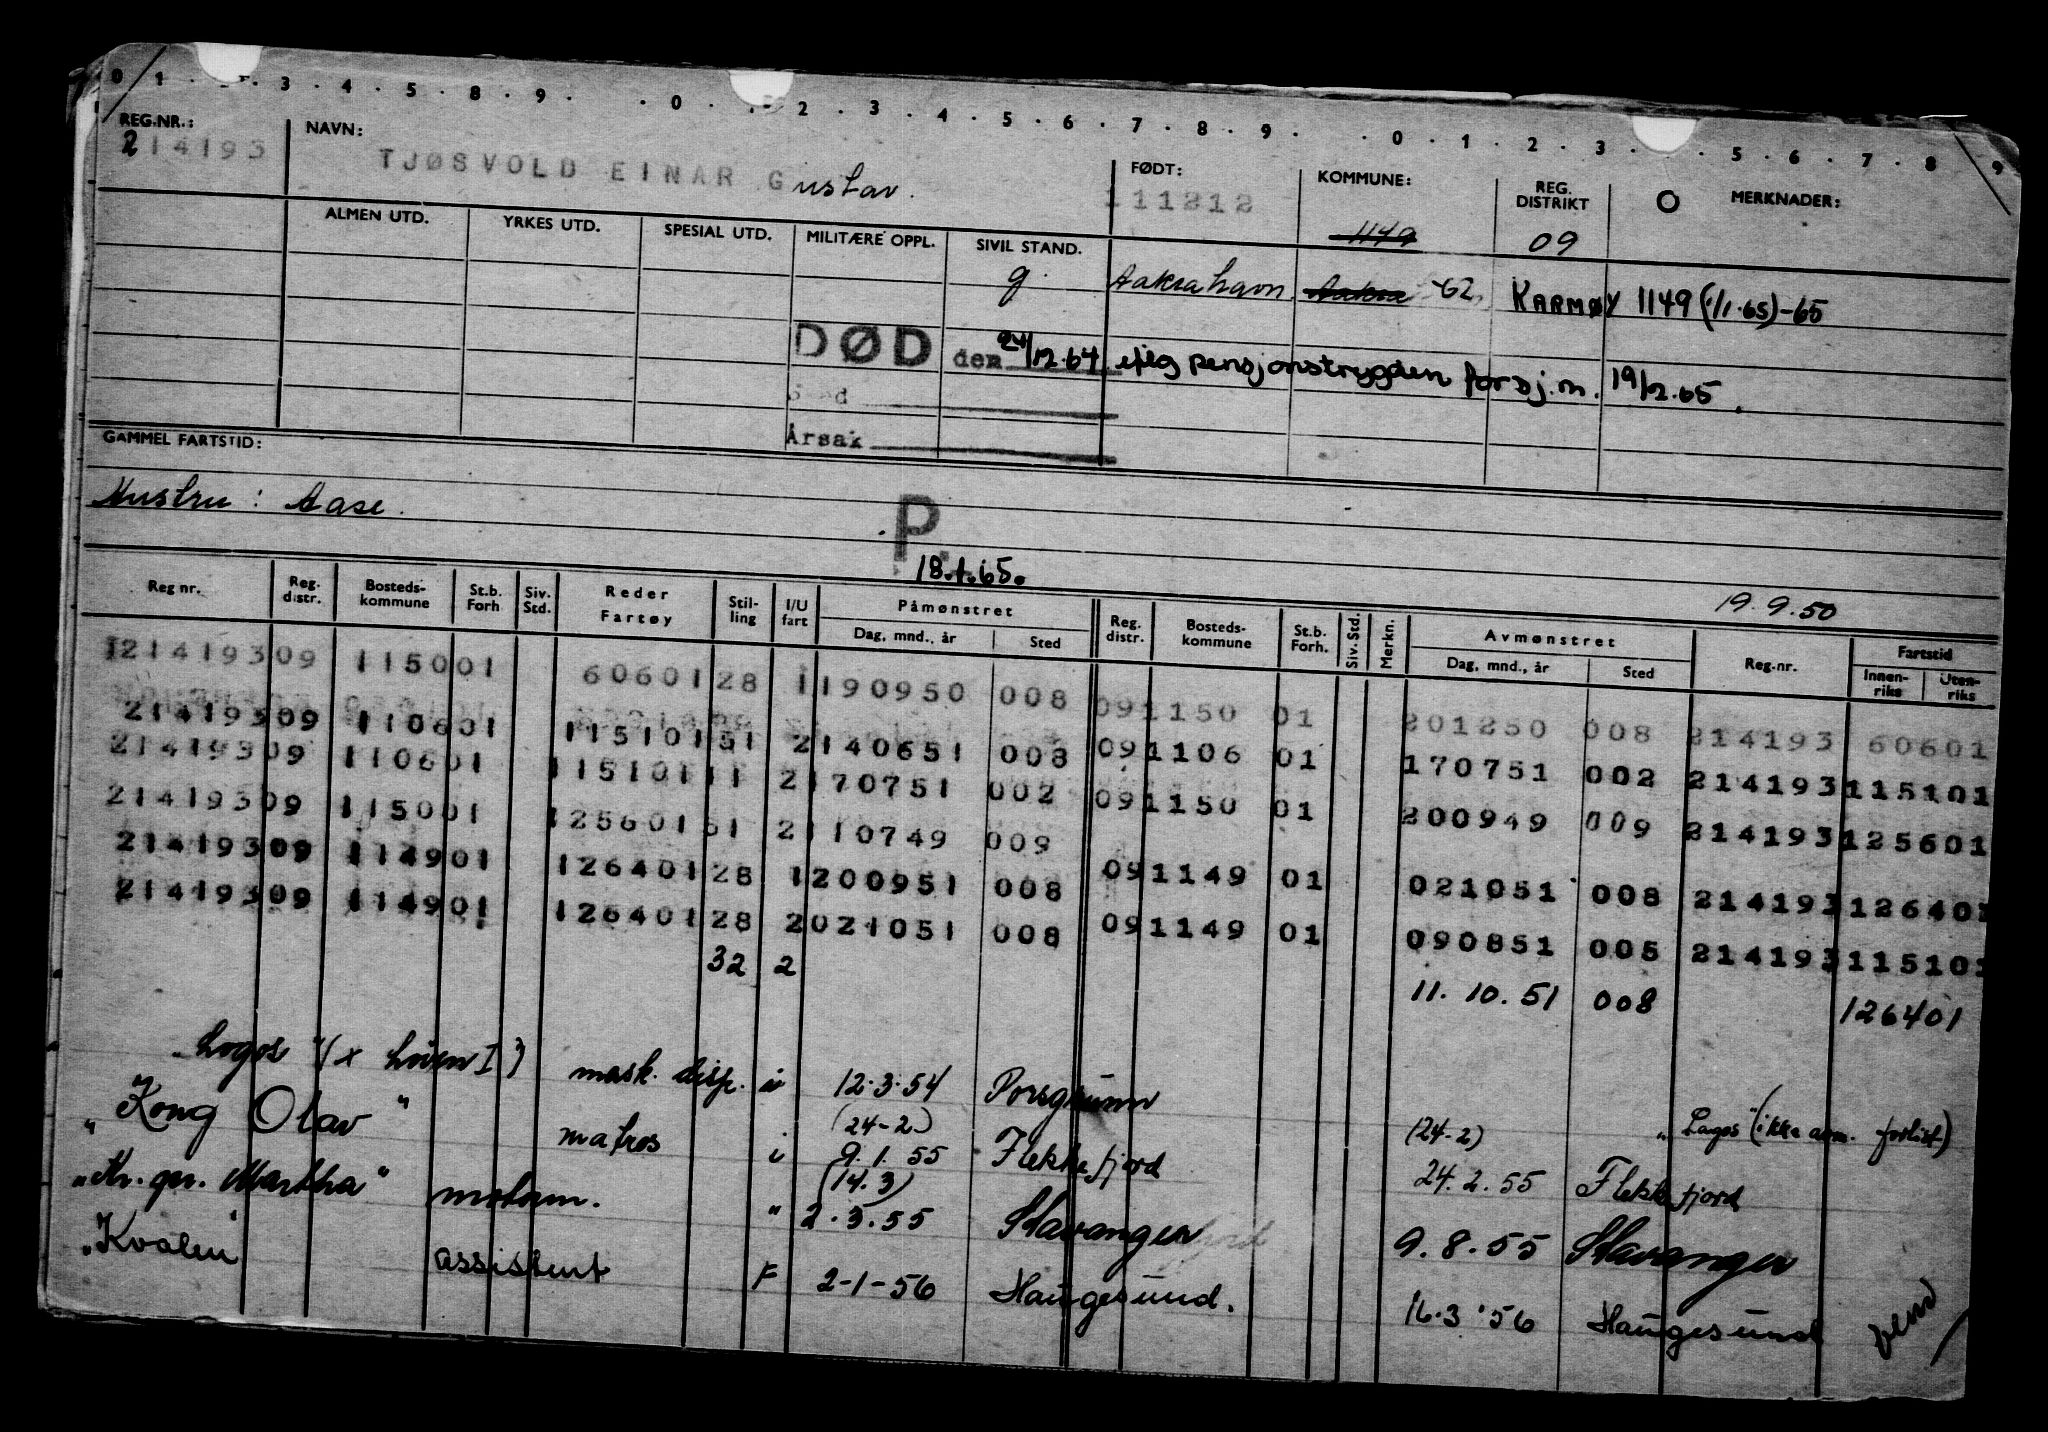 0 1 3 4 5 8 9 0 2 3 4 5 6 7 8 9 0 1 2 3 5 6 7 8 9
REG.NR.: NAVN: FØDT: KOMMUNE: REG. DISTRIKT O MERKNADER:
214193 TJØSVOLD EINAR Gustav. 111212 1149 09
ALMEN UTD. YRKES UTD. SPESIAL UTD. MILITÆRE OPPL. SIVIL STAND.
g Aakrahavn, Aakra -62, KARMØY 1149 (1/1-65)-65
DØD den 24/12.64 iflg pensjonstrygden for sj.m. 19/2.65.
Sted
Årsak
GAMMEL FARTSTID:
Hustru: Aase.
P.
18.1.65.
19.9.50
Reg nr. Reg. distr. Bosteds-kommune St.b. Forh Siv. Std. Reder Fartøy Stil-ling I/U fart Påmønstret Dag, mnd., år Sted Reg. distr. Bosteds-kommune St.b. Forh. Siv. Std. Merkn. Avmønstret Dag, mnd., år Sted Reg.nr. Fartstid Innen-riks Uten-riks
121419309 115001 6060128 1190950 008 091150 01 201250 008 214193 60601
21419309 110601 11510151 2140651 003 091106 01 170751 002 214193 115101
21419309 110601 11510111 2170751 002 091150 01 200949 009 214193 125601
21419309 115001 12560151 2110749 009 091149 01 021051 008 214193 126401
21419309 114901 12640128 1200951 008 091149 01 090851 005 214193 115101
21419309 114901 12640128 2021051 008 11.10.51 008 126401
32 2
"Logos" (x Løven I) mask. disp. i 12.3.54 Porsgrunn "Lagos" (ikke avm. forlist)
(24-2) (24-2)
"Kong Olav" matros i 9.1.55 Flekkefjord 24.2.55 Flekkefjord
(14.3)
Martha" motorm. " 2.3.55 Stavanger 9.8.55 Stavanger
"Kvalen" assistent F 2-1-56 Haugesund. 16.3.56 Haugesund